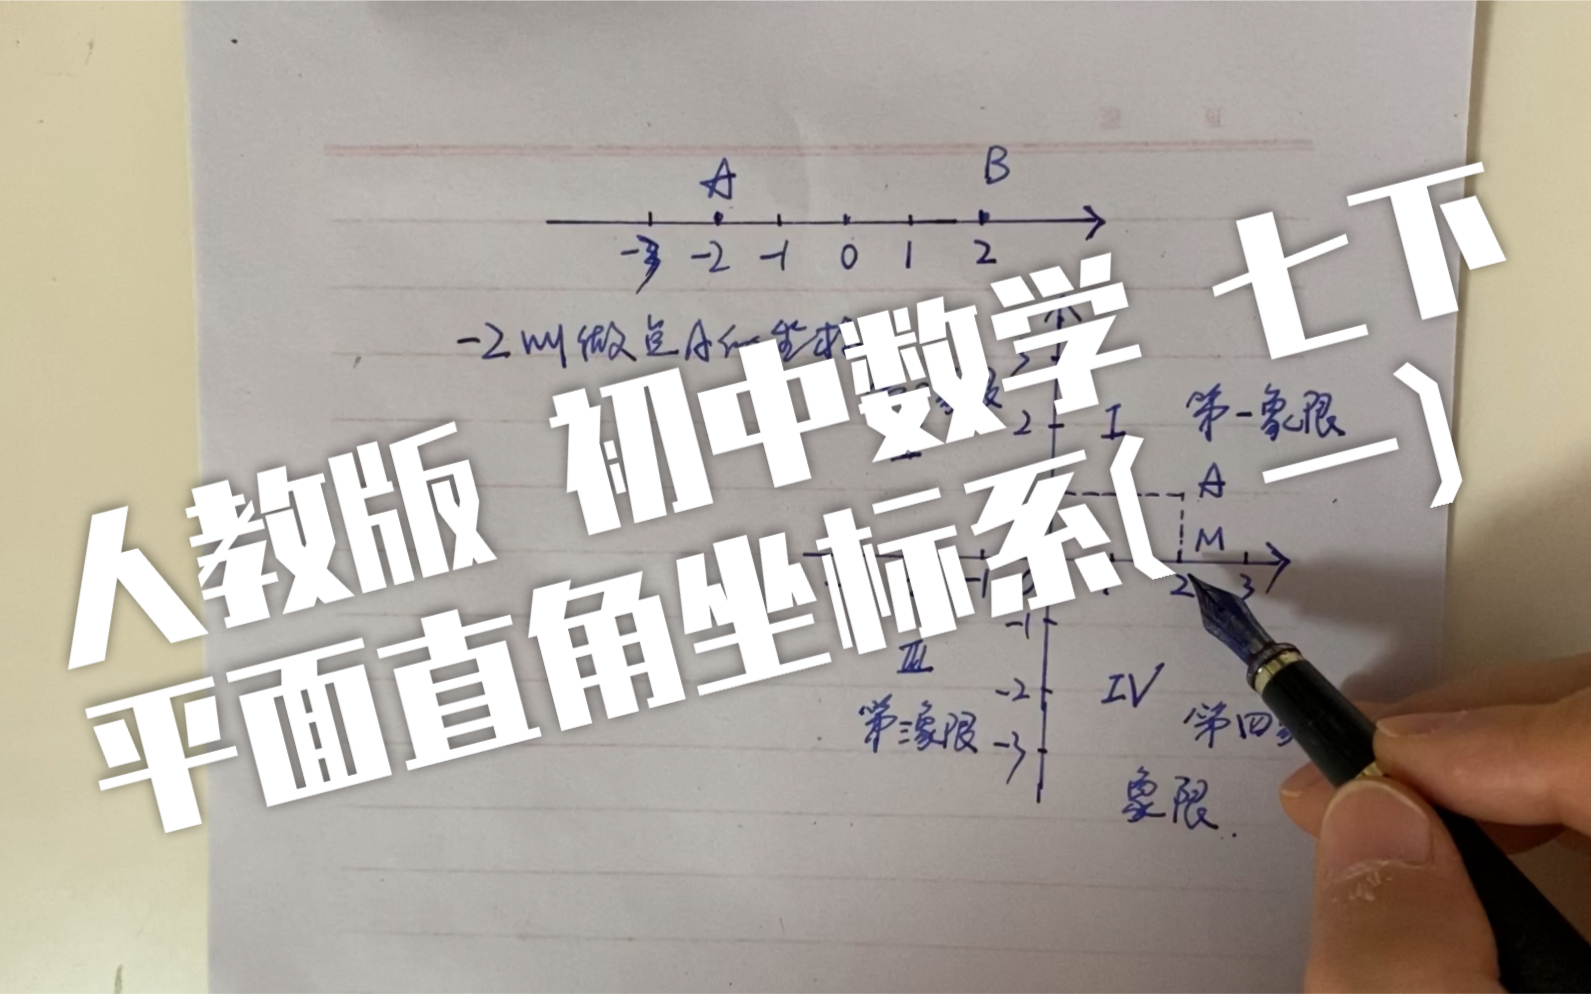 A B
-3 -2 -1 0 1 2
-2叫做点A的坐标
人教版 初中数学 七下
平面直角坐标系(一)
2 I 第一象限
A
M
-1 2 3
-1
III -2 IV
第三象限 -3 第四象
象限.